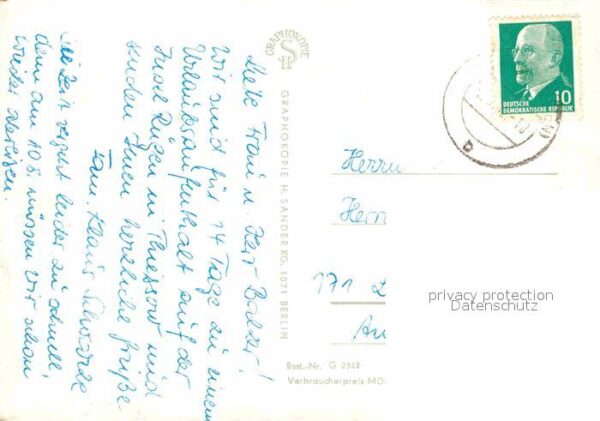 Liebe Frau u. Herr Balzer!
Wir sind für 14 Tage zu einem
Urlaubsaufenthalt auf der
Insel Rügen in Thiessow und
senden Ihnen herzliche Grüße
Fam. Klaus Schwarze
Die Zeit vergeht leider zu schnell,
denn am 10.8. müssen wir schon
wieder abreisen.
GRAPHOKOPIE
GRAPHOKOPIE H. SANDER KG, 1071 BERLIN
DEUTSCHE
DEMOKRATISCHE REPUBLIK
10
Herrn
171
privacy protection
Datenschutz
Best.-Nr. G 2343
Verbraucherpreis MD